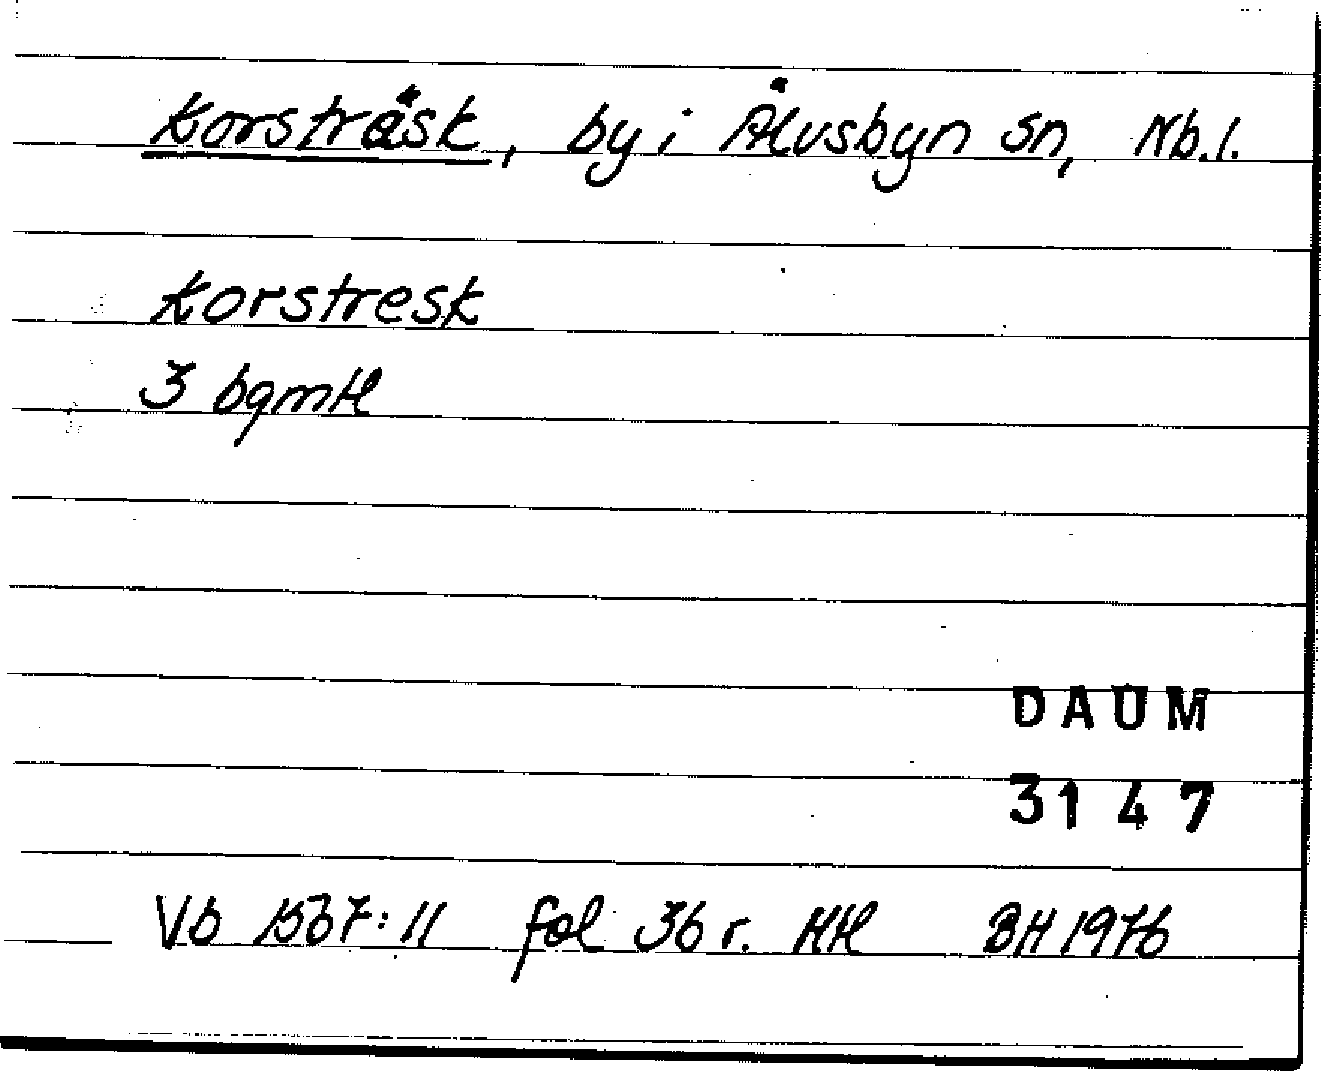 Korsträsk, by i Älvsbyn sn, Nb.l.
Korstresk
3 bgmH
DAUM
3147
Vb 1567:11 fol 36 r. HH BH 1976